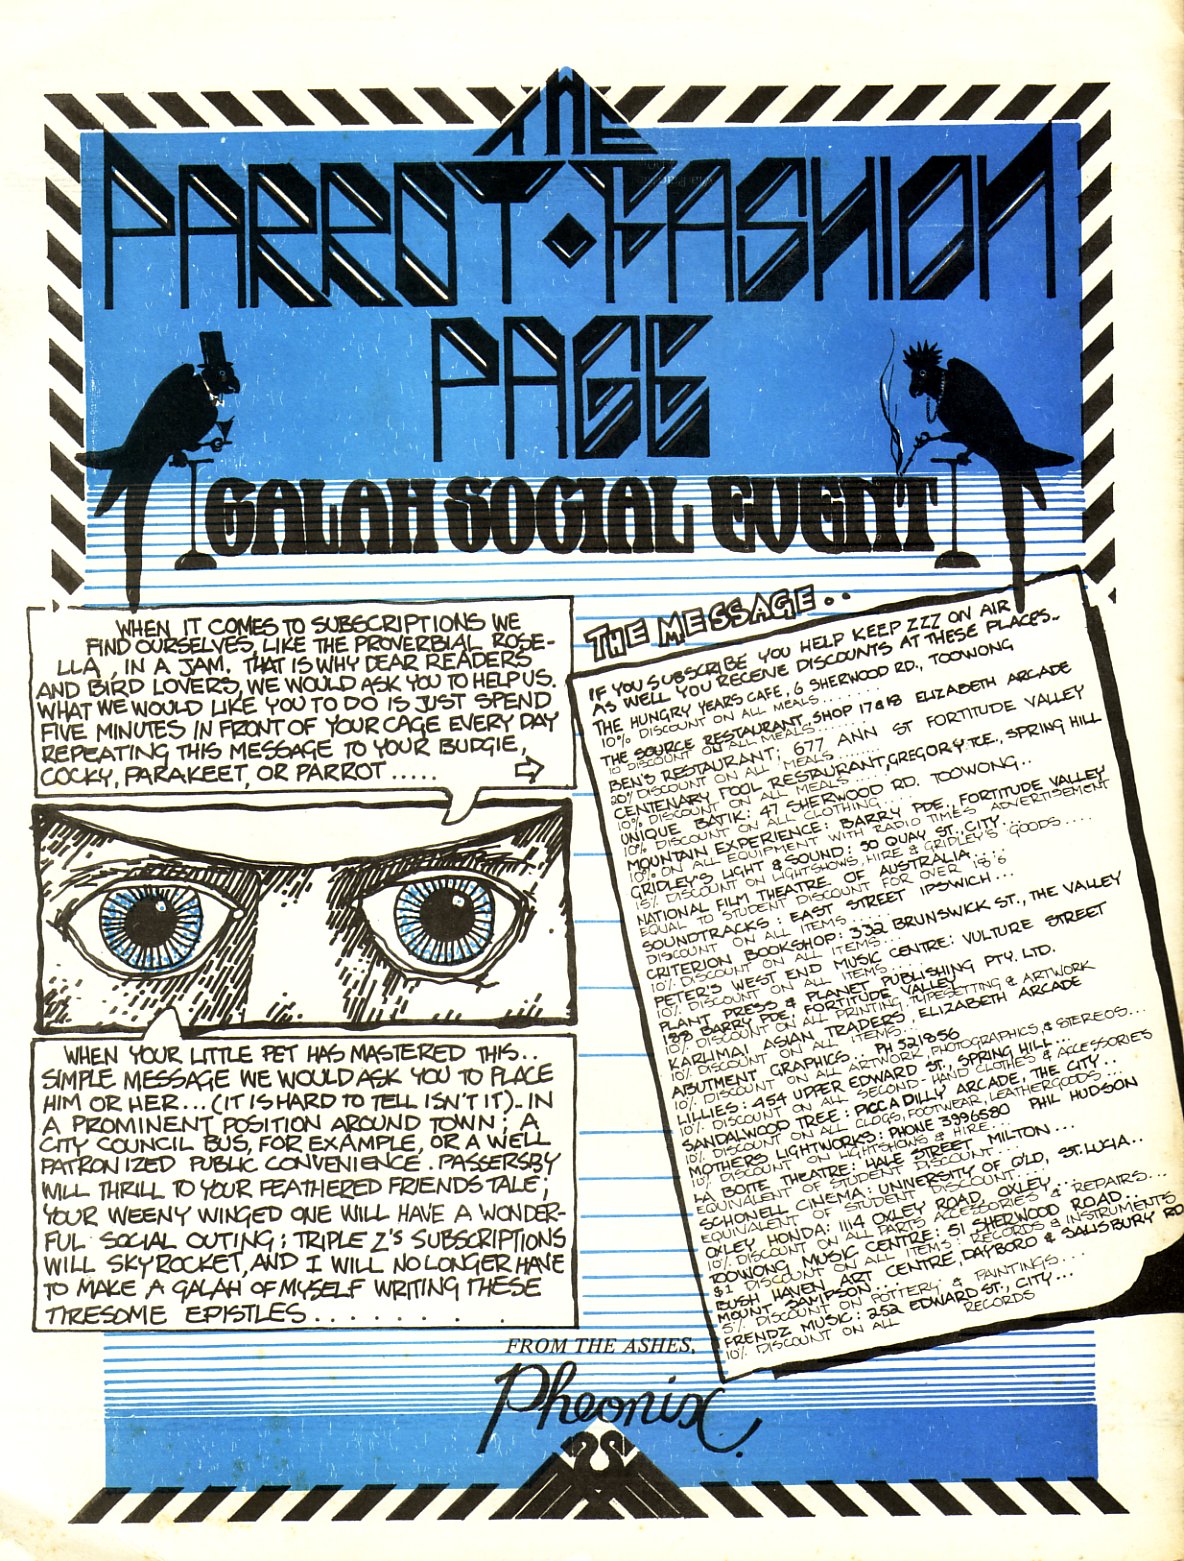 THE
PARROT • FASHION
PAGE
GALAH SOCIAL EVENT
WHEN IT COMES TO SUBSCRIPTIONS WE
FIND OURSELVES, LIKE THE PROVERBIAL ROSE-
LLA, IN A JAM. THAT IS WHY DEAR READERS
AND BIRD LOVERS, WE WOULD ASK YOU TO HELP US.
WHAT WE WOULD LIKE YOU TO DO IS JUST SPEND
FIVE MINUTES IN FRONT OF YOUR CAGE EVERY DAY
REPEATING THIS MESSAGE TO YOUR BUDGIE,
COCKY, PARAKEET, OR PARROT.....
WHEN YOUR LITTLE PET HAS MASTERED THIS..
SIMPLE MESSAGE WE WOULD ASK YOU TO PLACE
HIM OR HER...(IT IS HARD TO TELL ISN'T IT). IN
A PROMINENT POSITION AROUND TOWN; A
CITY COUNCIL BUS, FOR EXAMPLE, OR A WELL
PATRONIZED PUBLIC CONVENIENCE. PASSERSBY
WILL THRILL TO YOUR FEATHERED FRIENDS TALE;
YOUR WEENY WINGED ONE WILL HAVE A WONDER-
FUL SOCIAL OUTING; TRIPLE Z'S SUBSCRIPTIONS
WILL SKYROCKET, AND I WILL NO LONGER HAVE
TO MAKE A GALAH OF MYSELF WRITING THESE
TIRESOME EPISTLES........
THE MESSAGE..
IF YOU SUBSCRIBE YOU HELP KEEP ZZZ ON AIR
AS WELL YOU RECEIVE DISCOUNTS AT THESE PLACES..
THE HUNGRY YEARS CAFE, 6 SHERWOOD RD., TOOWONG
10% DISCOUNT ON ALL MEALS......
THE SOURCE RESTAURANT, SHOP 17&18 ELIZABETH ARCADE
10% DISCOUNT ON ALL MEALS......
BEN'S RESTAURANT; 677 ANN ST FORTITUDE VALLEY
20% DISCOUNT ON ALL MEALS......
CENTENARY POOL RESTAURANT, GREGORY TCE., SPRING HILL
10% DISCOUNT ON ALL MEALS...
UNIQUE BATIK: 47 SHERWOOD RD. TOOWONG..
10% DISCOUNT ON ALL CLOTHING...
MOUNTAIN EXPERIENCE: BARRY PDE, FORTITUDE VALLEY
10% ON ALL EQUIPMENT WITH RADIO TIMES ADVERTISEMENT
GRIDLEY'S LIGHT & SOUND: 50 QUAY ST., CITY...
15% DISCOUNT ON LIGHTSHOWS, HIRE & GRIDLEY'S GOODS.....
NATIONAL FILM THEATRE OF AUSTRALIA....
EQUAL TO STUDENT DISCOUNT FOR OVER 18'S
SOUNDTRACKS: EAST STREET IPSWICH...
DISCOUNT ON ALL ITEMS.....
CRITERION BOOKSHOP: 332 BRUNSWICK ST., THE VALLEY
10% DISCOUNT ON ALL ITEMS...
PETER'S WEST END MUSIC CENTRE: VULTURE STREET
10% DISCOUNT ON ALL ITEMS...
PLANT PRESS & PLANET PUBLISHING PTY. LTD.
189 BARRY PDE; FORTITUDE VALLEY
10% DISCOUNT ON ALL PRINTING, TYPESETTING & ARTWORK
KARLIMAI ASIAN TRADERS, ELIZABETH ARCADE
10% DISCOUNT ON ALL ITEMS..
ABUTMENT GRAPHICS... PH 321856
10% DISCOUNT ON ALL ARTWORK, PHOTOGRAPHICS & STEREOS...
LILLIES: 454 UPPER EDWARD ST., SPRING HILL...
10% DISCOUNT ON ALL SECOND-HAND CLOTHES & ACCESSORIES
SANDALWOOD TREE: PICCADILLY ARCADE, THE CITY...
10% DISCOUNT ON ALL CLOGS, FOOTWEAR, LEATHERGOODS...
MOTHERS LIGHTWORKS: PHONE 3996580 PHIL HUDSON
10% DISCOUNT ON LIGHTSHOWS & HIRE...
LA BOITE THEATRE: HALE STREET MILTON...
EQUIVALENT OF STUDENT DISCOUNT....
SCHONELL CINEMA: UNIVERSITY OF Q'LD, ST. LUCIA...
EQUIVALENT OF STUDENT DISCOUNT...
OXLEY HONDA: 1114 OXLEY ROAD, OXLEY...
10% DISCOUNT ON ALL PARTS ACCESSORIES & REPAIRS...
TOOWONG MUSIC CENTRE: 51 SHERWOOD ROAD..
$1 DISCOUNT ON ALL ITEMS, RECORDS & INSTRUMENTS
BUSH HAVEN ART CENTRE, DAYBORO & SALISBURY RD
MOUNT SAMPSON...
5% DISCOUNT ON POTTERY & PAINTINGS....
FRENDZ MUSIC: 252 EDWARD ST., CITY...
10% DISCOUNT ON ALL RECORDS
FROM THE ASHES,
Pheonix.